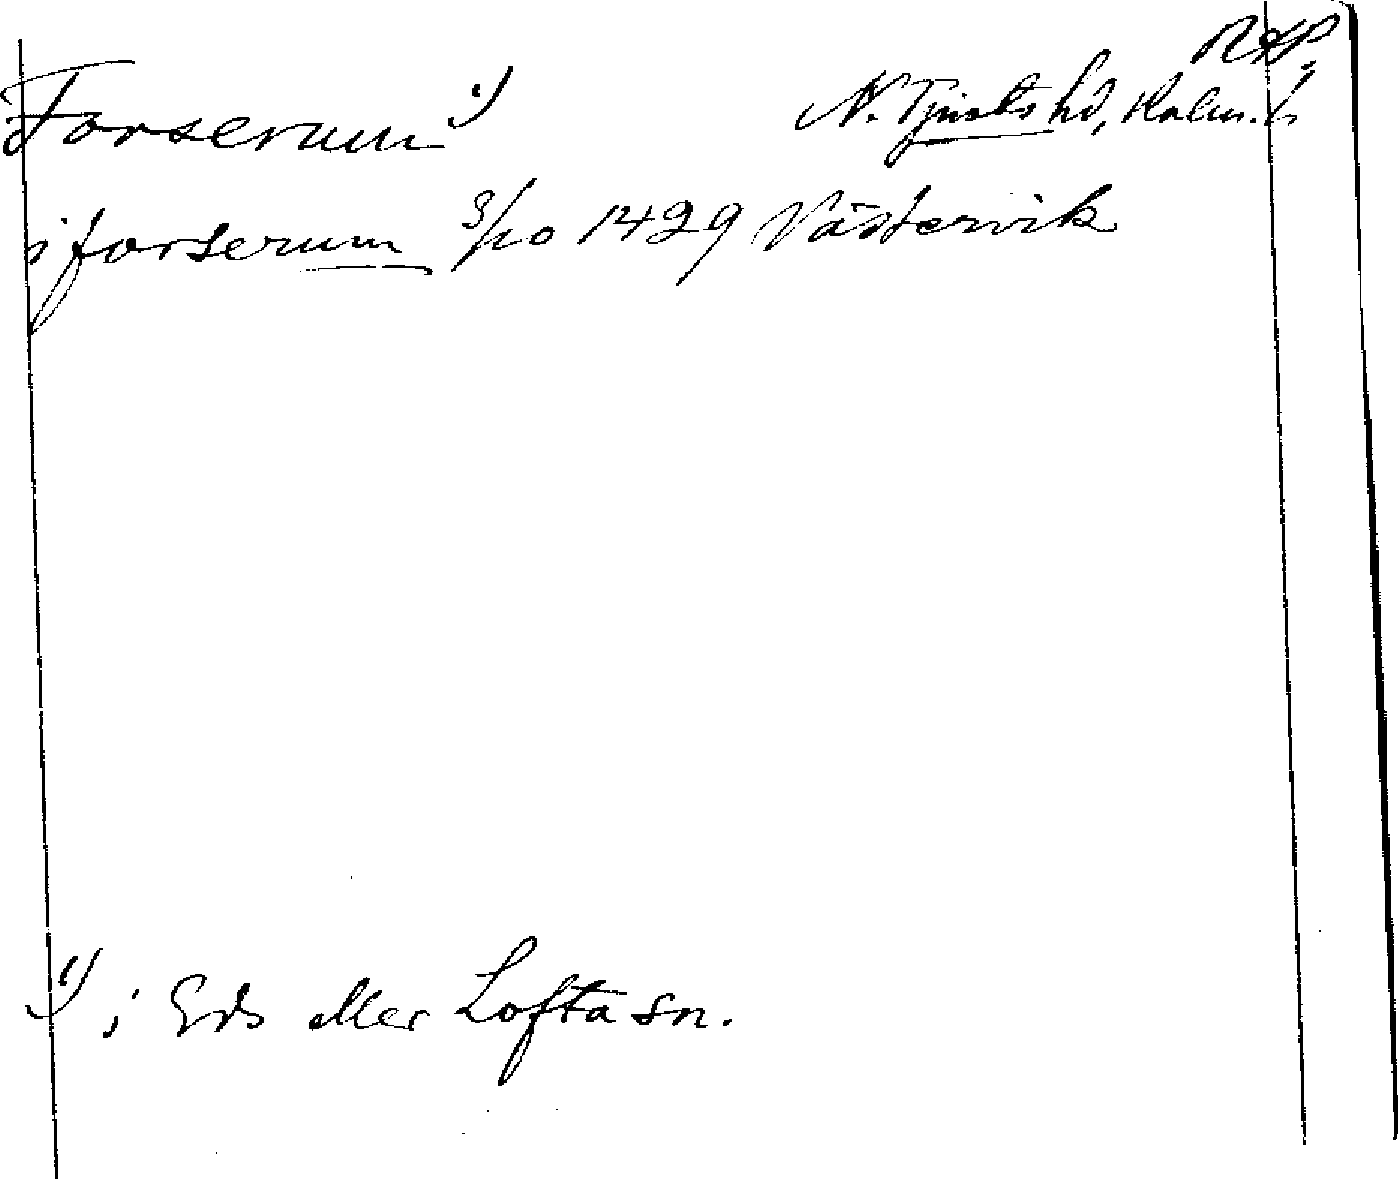 RAP,
Forserum 1)
N. Tjusts hd, Kalm. l.
i forserum 3/10 1429 Västervik
1) i Eds eller Lofta sn.